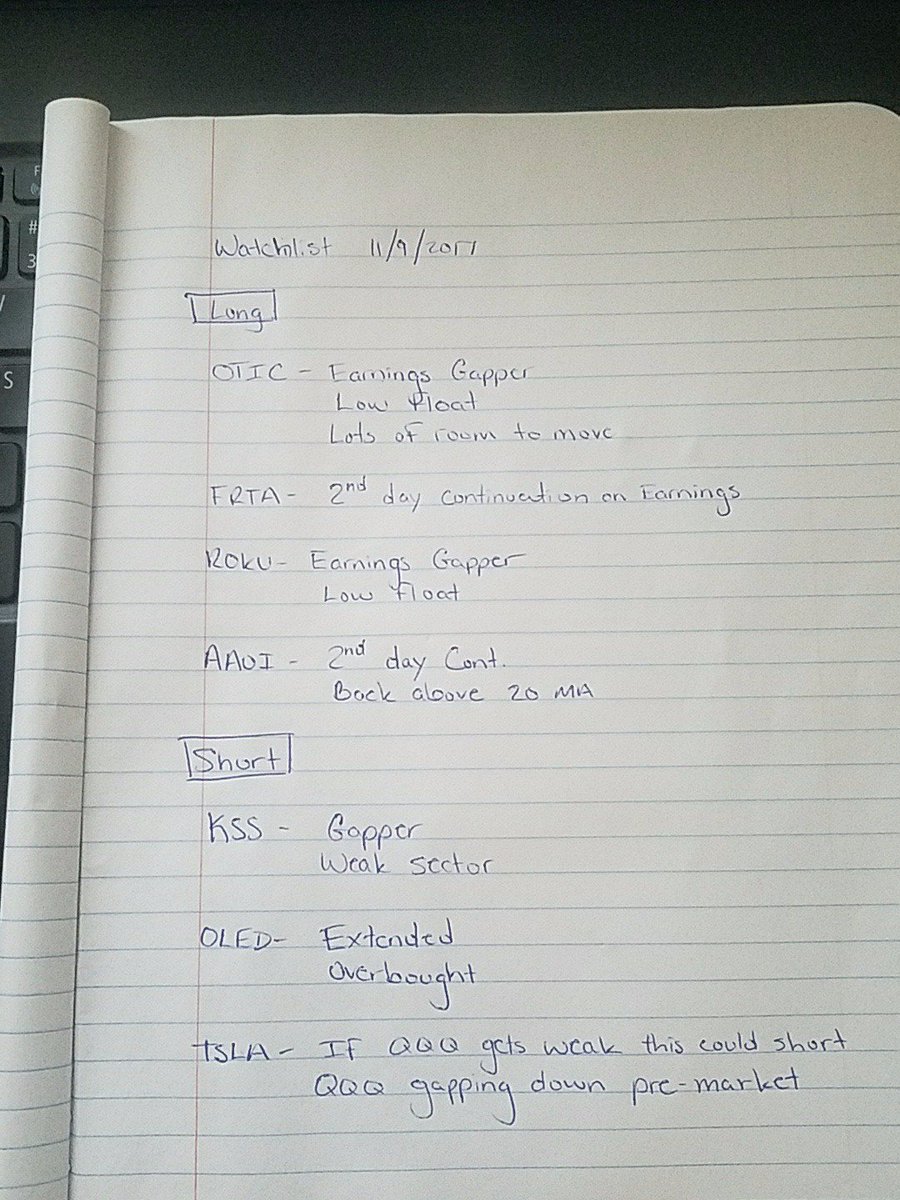 Watchlist 11/9/2017
Long
OTIC - Earnings Gapper
Low float
Lots of room to move
FRTA - 2nd day continuation on Earnings
ROKU - Earnings Gapper
Low float
AAOI - 2nd day Cont.
Back above 20 MA
Short
KSS - Gapper
Weak sector
OLED - Extended
Overbought
TSLA - IF QQQ gets weak this could short
QQQ gapping down pre-market
F
#
3
S